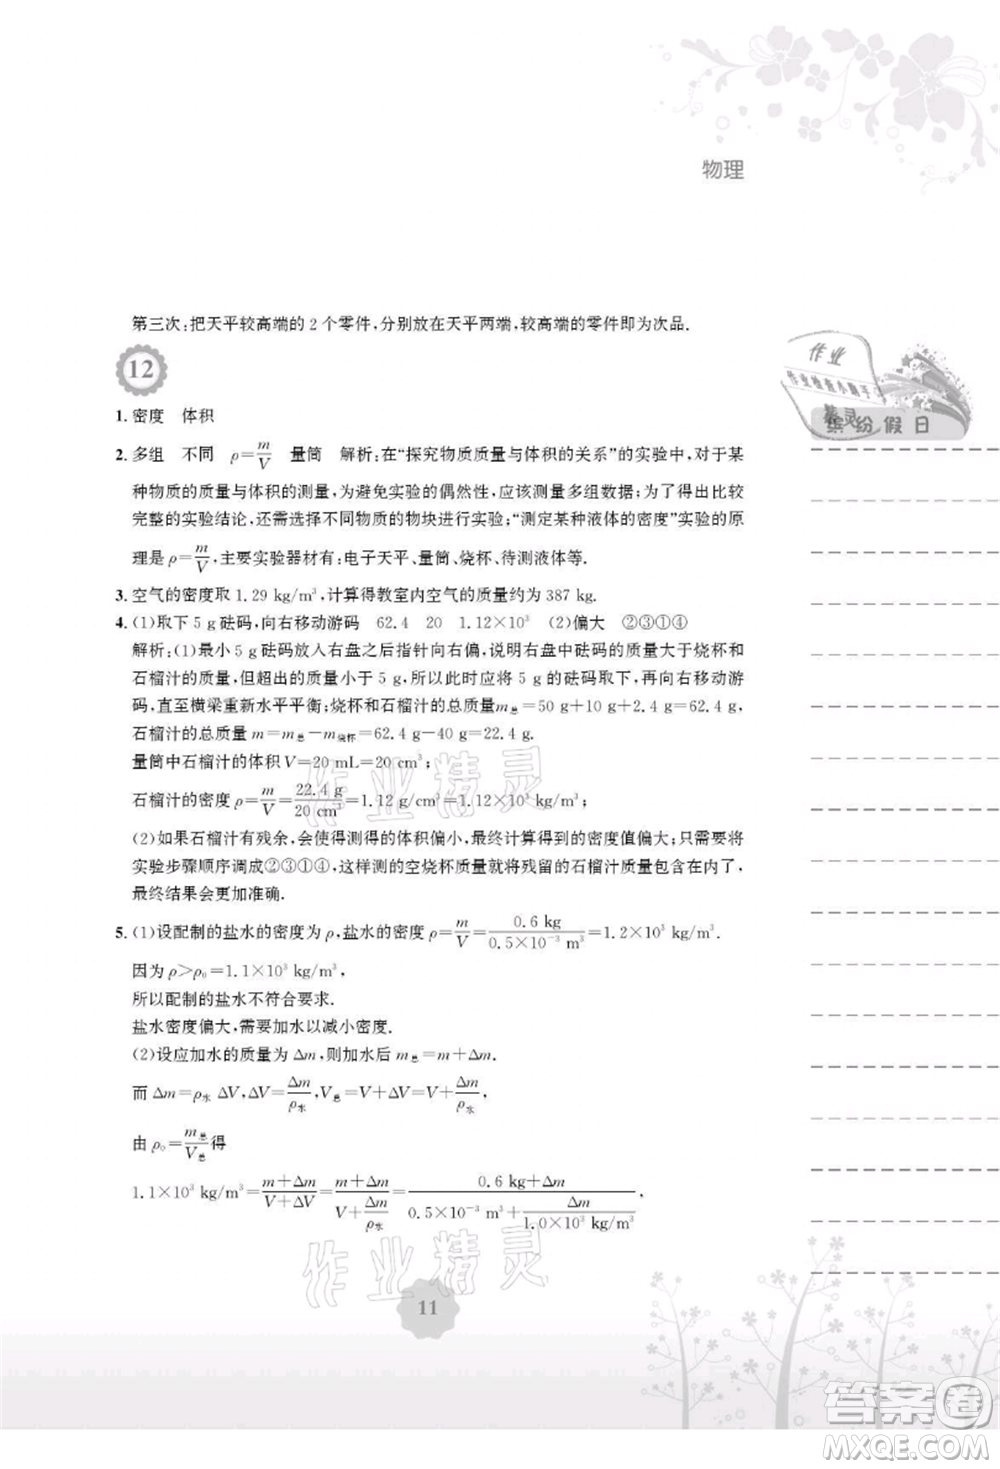 物理
第三次:把天平较高端的2个零件,分别放在天平两端,较高端的零件即为次品.
12
作业
作业检查小助手
精灵
缤纷假日
1.密度 体积
2.多组 不同 ρ=m/V 量筒 解析:在“探究物质质量与体积的关系”的实验中,对于某
种物质的质量与体积的测量,为避免实验的偶然性,应该测量多组数据;为了得出比较
完整的实验结论,还需选择不同物质的物块进行实验;“测定某种液体的密度”实验的原
理是 ρ=m/V,主要实验器材有:电子天平、量筒、烧杯、待测液体等.
3.空气的密度取 1.29 kg/m³,计算得教室内空气的质量约为 387 kg.
4.(1)取下 5 g 砝码,向右移动游码 62.4 20 1.12×10³ (2)偏大 ②③①④
解析:(1)最小 5 g 砝码放入右盘之后指针向右偏,说明右盘中砝码的质量大于烧杯和
石榴汁的质量,但超出的质量小于 5 g,所以此时应将 5 g 的砝码取下,再向右移动游
码,直至横梁重新水平平衡;烧杯和石榴汁的总质量 m总=50 g+10 g+2.4 g=62.4 g,
石榴汁的总质量 m=m总−m烧杯=62.4 g−40 g=22.4 g;
量筒中石榴汁的体积 V=20 mL=20 cm³;
石榴汁的密度 ρ=m/V=22.4 g/20 cm³=1.12 g/cm³=1.12×10³ kg/m³;
(2)如果石榴汁有残余,会使得测得的体积偏小,最终计算得到的密度值偏大;只需要将
实验步骤顺序调成②③①④,这样测的空烧杯质量就将残留的石榴汁质量包含在内了,
最终结果会更加准确.
5.(1)设配制的盐水的密度为 ρ,盐水的密度 ρ=m/V=0.6 kg/0.5×10⁻³ m³=1.2×10³ kg/m³.
因为 ρ>ρ₀=1.1×10³ kg/m³,
所以配制的盐水不符合要求.
盐水密度偏大,需要加水以减小密度.
(2)设应加水的质量为 Δm,则加水后 m总=m+Δm.
而 Δm=ρ水 ΔV,ΔV=Δm/ρ水,V总=V+ΔV=V+Δm/ρ水,
由 ρ₀=m总/V总得
1.1×10³ kg/m³=(m+Δm)/(V+ΔV)=(m+Δm)/(V+Δm/ρ水)=(0.6 kg+Δm)/(0.5×10⁻³ m³+Δm/(1.0×10³ kg/m³)),
作业精灵
作业精灵
11
答案圈
MXQE.COM